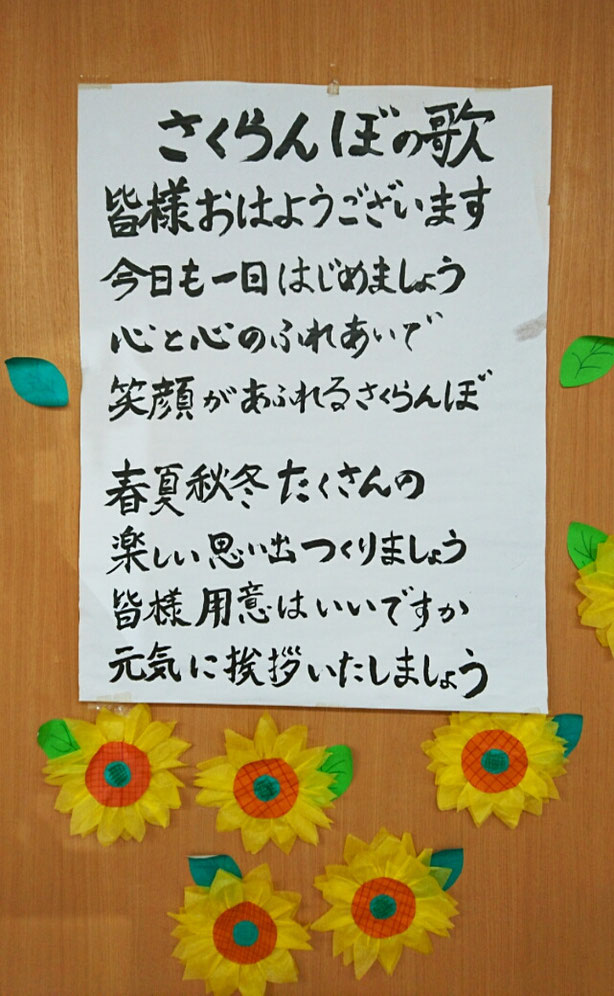 さくらんぼの歌
皆様おはようございます
今日も一日はじめましょう
心と心のふれあいで
笑顔があふれるさくらんぼ
春夏秋冬たくさんの
楽しい思い出つくりましょう
皆様用意はいいですか
元気に挨拶いたしましょう